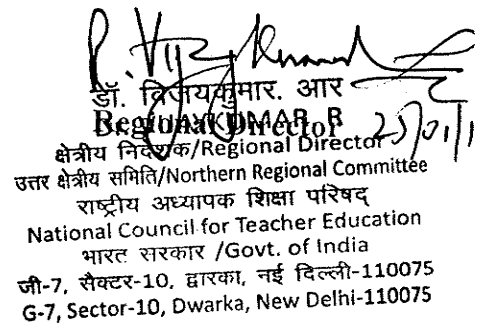 डॉ. विजयकुमार. आर
Regional Director
VIJAYKUMAR R
क्षेत्रीय निदेशक/Regional Director
उत्तर क्षेत्रीय समिति/Northern Regional Committee
राष्ट्रीय अध्यापक शिक्षा परिषद्
National Council for Teacher Education
भारत सरकार /Govt. of India
जी-7, सैक्टर-10, द्वारका, नई दिल्ली-110075
G-7, Sector-10, Dwarka, New Delhi-110075